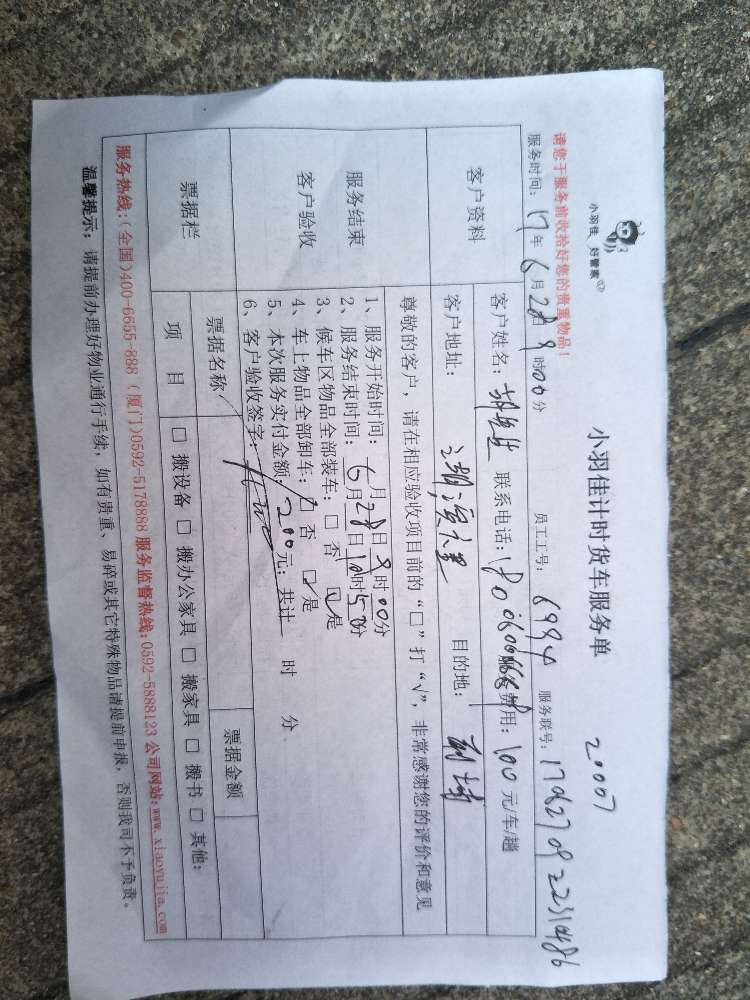 小羽佳 好管家
小羽佳计时货车服务单
20007
请您于服务前收拾好您的贵重物品！
服务时间：17年6月28日9时00分 员工工号：6994 服务联号：
客户资料
客户姓名： 联系电话： 费用：100元/车/趟
客户地址： 目的地：
尊敬的客户，请在相应验收项目前的“□”打“√”，非常感谢您的评价和意见
服务结束
客户验收
1、服务开始时间：6月28日9时00分
2、服务结束时间：6月28日10时50分
3、候车区物品全部装车：□ 否 ☑是
4、车上物品全部卸车：□ 否 ☑是
5、本次服务实付金额：200元；共计 时 分
6、客户验收签字：
票据栏
票据名称 票据金额
项 目 □ 搬设备 □ 搬办公家具 □ 搬家具 □ 搬书 □ 其他：
服务热线：(全国)400-6655-888 (厦门)0592-5178888 服务监督热线：0592-5888123 公司网站：www.xiaoyujia.com
温馨提示：请提前办理好物业通行手续，如有贵重、易碎或其它特殊物品请提前申报，否则我司不予负责。